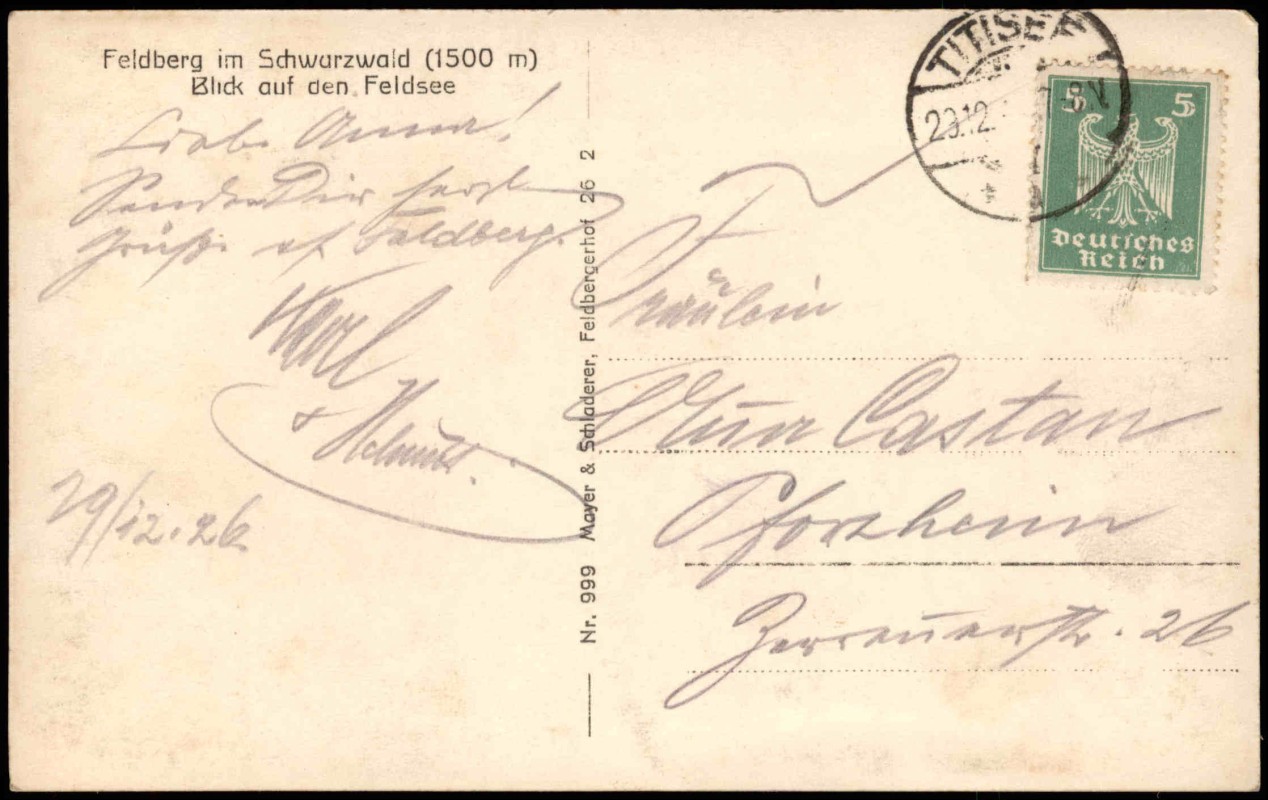 Feldberg im Schwarzwald (1500 m)
Blick auf den Feldsee
Liebe Anna!
Sende Dir herzl.
Grüße v. Feldberg.
Karl
+ Helmut.
29/12.26
Nr. 999 Mayer & Schladerer, Feldbergerhof 26 2
TITISEE
29.12.
5 5
Deutsches
Reich
Fräulein
Castan
Pforzheim
26